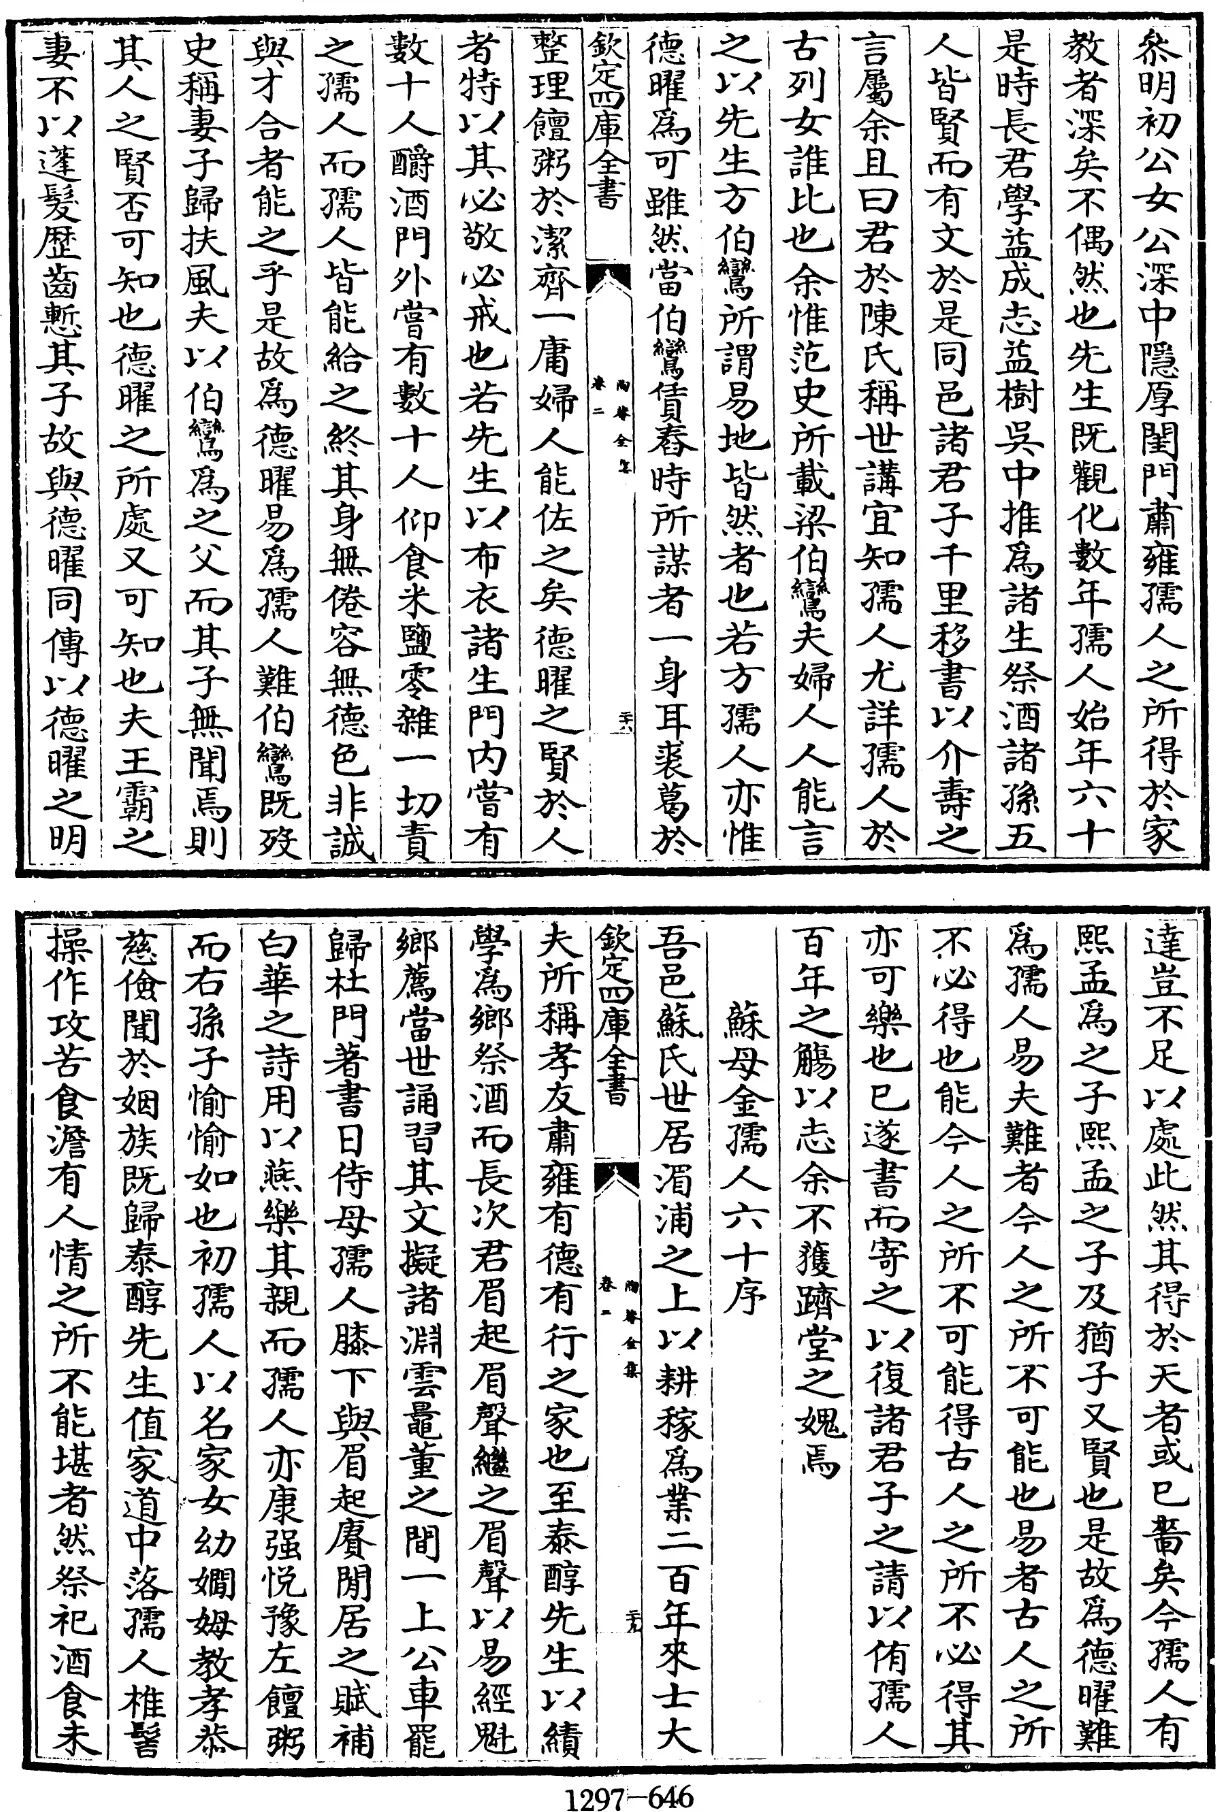 叅明初公女公深中隱厚閨門肅雍孺人之所得於家
教者深矣不偶然也先生既觀化數年孺人始年六十
是時長君學益成志益樹吳中推為諸生祭酒諸孫五
人皆賢而有文於是同邑諸君子千里移書以介壽之
言屬余且曰君於陳氏稱世講宜知孺人尤詳孺人於
古列女誰比也余惟范史所載梁伯鸞夫婦人人能言
之以先生方伯鸞所謂易地皆然者也若方孺人亦惟
德曜為可雖然當伯鸞賃舂時所謀者一身耳裘葛於
欽定四庫全書
陶菴全集
卷二
二十八
整理饘粥於潔齊一庸婦人能佐之矣德曜之賢於人
者特以其必敬必戒也若先生以布衣諸生門内嘗有
數十人釂酒門外嘗有數十人仰食米鹽零雜一切責
之孺人而孺人皆能給之終其身無倦容無德色非誠
與才合者能之乎是故為德曜易為孺人難伯鸞既歿
史稱妻子歸扶風夫以伯鸞為之父而其子無聞焉則
其人之賢否可知也德曜之所處又可知也夫王霸之
妻不以蓬髮歴齒慙其子故與德曜同傳以德曜之明
達豈不足以處此然其得於天者或已嗇矣今孺人有
熙孟為之子熙孟之子及猶子又賢也是故為德曜難
為孺人易夫難者今人之所不可能也易者古人之所
不必得也能今人之所不可能得古人之所不必得其
亦可樂也已遂書而寄之以復諸君子之請以侑孺人
百年之觴以志余不獲躋堂之媿焉
蘇母金孺人六十序
吾邑蘇氏世居湄浦之上以耕稼為業二百年來士大
欽定四庫全書
陶菴全集
卷二
二十九
夫所稱孝友肅雍有德有行之家也至泰醇先生以績
學為鄉祭酒而長次君眉起眉聲繼之眉聲以易經魁
鄉薦當世誦習其文擬諸淵雲鼂董之間一上公車罷
歸杜門著書日侍母孺人膝下與眉起賡閒居之賦補
白華之詩用以燕樂其親而孺人亦康强悦豫左饘粥
而右孫子愉愉如也初孺人以名家女幼嫺姆教孝恭
慈儉聞於姻族既歸泰醇先生值家道中落孺人椎髻
操作攻苦食澹有人情之所不能堪者然祭祀酒食未
1297-646